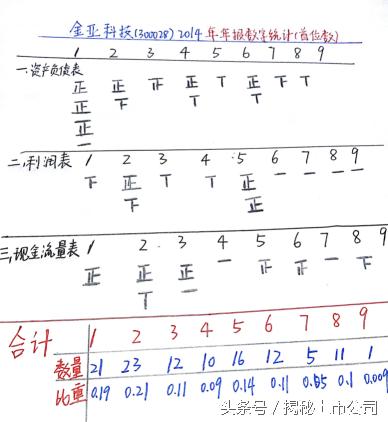 金亚科技(300028)2014年年报数字统计(首位数)
1 2 3 4 5 6 7 8 9
一.资产负债表
正 正 正 正 T 正 T 下 T
正 下 T T
正
正
一
二.利润表 1 2 3 4 5 6 7 8 9
下 正 T T 正 一 一 一 一
下 正
三.现金流量表 1 2 3 4 5 6 7 8 9
正 正 正 一 正 正 一 下
T 一
合计 1 2 3 4 5 6 7 8 9
数量 21 23 12 10 16 12 5 11 1
比重 0.19 0.21 0.11 0.09 0.14 0.11 0.05 0.1 0.009
头条号/揭秘上市公司